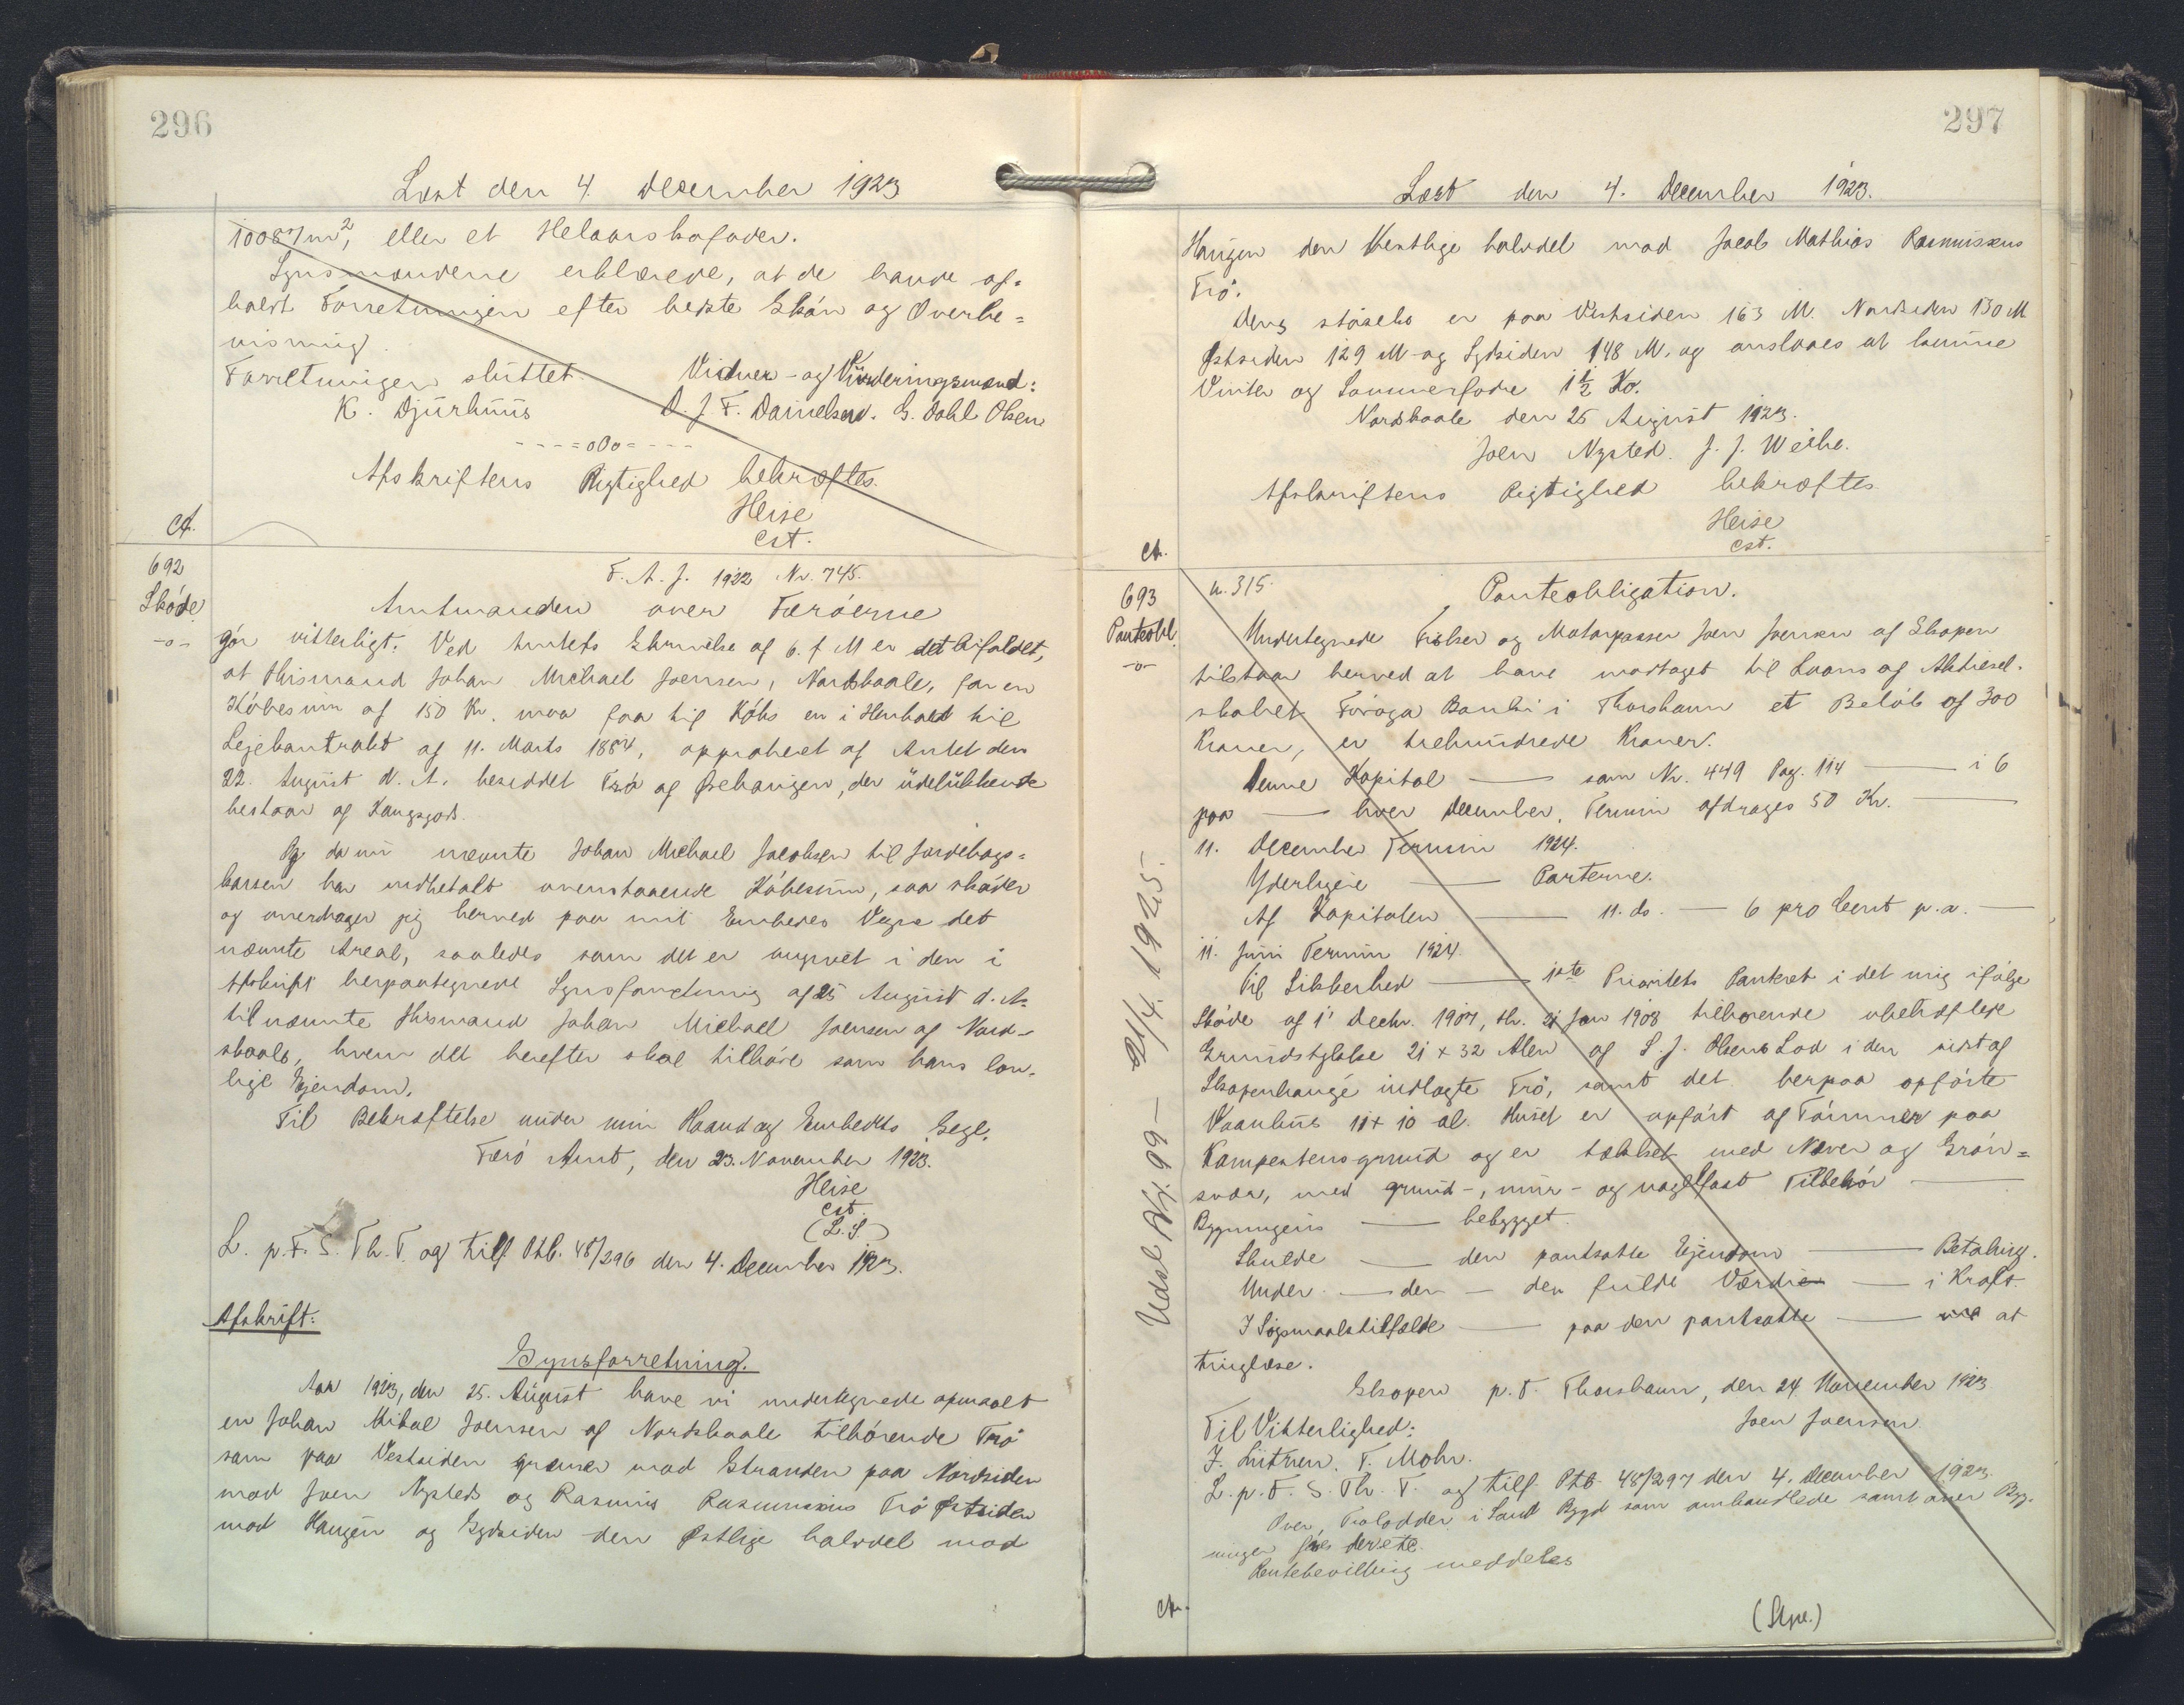 296
Læst den 4. December 1923
10087 m², eller et Helaarskofoder.
Synsmændene erklærede, at de havde af-
holdt Forretningen efter bedste Skön og Overbe=
visning.
Forretningen sluttet. Vidner- og Vurderingsmænd:
K. Djurhuus D. J. F. Danielsen. G. Dahl Olsen
----=oOo=----
Afskriftens Rigtighed bekræftes.
Heise
cst.
692
Sköde
-o-
F. A. J. 1922 Nr. 745.
Amtmanden over Færöerne
gör vitterligt: Ved Amtets Skrivelse af 6. f M er det bifaldet,
at Husmand Johan Michael Joensen, Nordskaale, for en
Köbesum af 150 Kr. maa faa til Köbs en i Henhold til
Lejekontrakt af 11. Marts 1884, approberet af Amtet den
22. August d. A. besiddet Trö af Örehaugen, der udelukkende
bestaar af Kongsgods.
Og da nu nævnte Johan Michael Jacobsen til Jordebogs=
kassen har indbetalt ovenstaaende Köbesum, saa sköder
og overdrager jeg herved paa mit Embedes Vegne det
nævnte Areal, saaledes som det er angivet i den i
Afskrift herpaategnede Synsforretning af 25 August d. A.
til nævnte Husmand Johan Michael Joensen af Nord-
skaale, hvem det herefter skal tilhöre som hans lov-
lige Ejendom.
Til Bekræftelse under min Haand og Embedes Segl.
Færö Amt, den 23. November 1923.
Heise
cst.
(L.S.)
L. p. F. S. Th. T. og tilf. Ptb. 48/296 den 4. December 1923.
Afskrift:
Synsforretning.
Aar 1923, den 25. August have vi undertegnede opmaalt
en Johan Mikal Joensen af Nordskaale tilhörende Trö
som paa Vestsiden grænser mod Stranden paa Nordsiden
mod Joen Nysteds og Rasmus Rasmussens Trö Östsiden
mod Haugen og Sydsiden den Østlige halvdel mod
297
Læst den 4. December 1923.
Haugen den Vestlige halvdel mod Jacob Mathias Rasmussens
Trö.
Dens störelse er paa Vestsiden 163 M. Nordsiden 130 M
Østsiden 129 M og Sydsiden 148 M. og anslaaes at kunne
Vinter og Sommerfodre 1½ Ko.
Nordskaale den 25 August 1923.
Joen Nysted. J. J. Weihe.
Afskriftens Rigtighed bekræftes
Heise
cst.
693
Panteobl.
-o-
u. 315.
Panteobligation.
Undertegnede Fisker og Motorpasser Joen Joensen af Skopen
tilstaar herved at have modtaget til Laans af Aktiesel-
skabet Föroya Banki i Thorshavn et Belöb af 300
Kroner, er trehundrede Kroner.
Denne Kapital — som Nr. 449 Pag. 114 — i 6
paa — hver December Termin afdrages 50 Kr. —
11. December Termin 1924.
Yderligere — Parterne.
Af Kapitalen — 11. ds. — 6 pro Cent p.a. —
11. Juni Termin 1924.
Til Sikkerhed — 1ste Prioritets Panteret i det mig ifölge
Sköde af 1' Decbr. 1907, thl. 21 Jan 1908 tilhörende ubehæftede
Grundstykke 21 x 32 Alen af S. J. Olsens Lod i den sidst af
Skopenhauge indlagte Trö, samt det herpaa opförte
Vaanhus 11 x 10 al. Huset er opfört af Tömmer paa
Kampestensgrund og er tækket med Næver og Grön=
svær, med grund-, mur- og nagelfast Tilbehör —
Bygningens — bebygget.
Skulde — den pantsatte Ejendom — Betaling.
Under — den — den fulde Værdi — i Kraft.
I Sögsmaalstilfælde — paa den pantsatte — at
tinglæse.
Skopen p. t. Thorshavn, den 24 November 1923
Joen Joensen.
Til Vitterlighed:
J. Lützen. T. Mohr.
L. p. F. S. Th. T. og tilf. Ptb. 48/297 den 4. December 1923.
Over Trölodder i Sand Bygd som omhandlede samt over Byg-
ninger derete.
Rentebevilling meddeles
Udsl. 99 — 21/4. 1925.